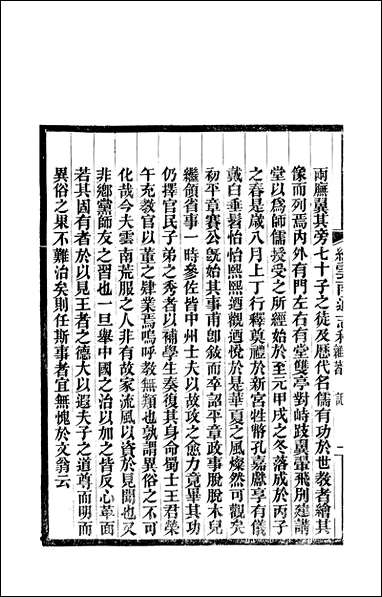 兩廡翼其旁七十子之徒及歷代名儒有功於世敎者繪其
像而列焉內外有門左右有堂雙亭對峙跂翼翬飛別建講
堂以爲師儒授受之所經始於至元甲戌之冬落成於丙子
之春是歲八月上丁行釋奠禮於新宮牲幣孔嘉獻享有儀
戴白垂髫怡怡熙熙遐觀邇悅於是華夏之風燦然可觀矣
初平章賽公旣始其事甫卽敘而卒詔平章政事脫脫木兒
繼領省事一時參佐皆中州士夫以故攻之愈力竟畢其功
仍擇官民子弟之秀者以補學生奏復其身命蜀士王君榮
午充敎官以董之肄業焉嗚呼敎無類也孰謂異俗之不可
化哉今夫雲南荒服之人非有故家流風以資於見聞也又
非鄉黨師友之習也一旦舉中國之治以加之皆反心革面
若其固有者於以見王者之德大以遐夫子之道尊而明而
異俗之果不難治矣則任斯事者宜無愧於文翁云
續雲南通志稿